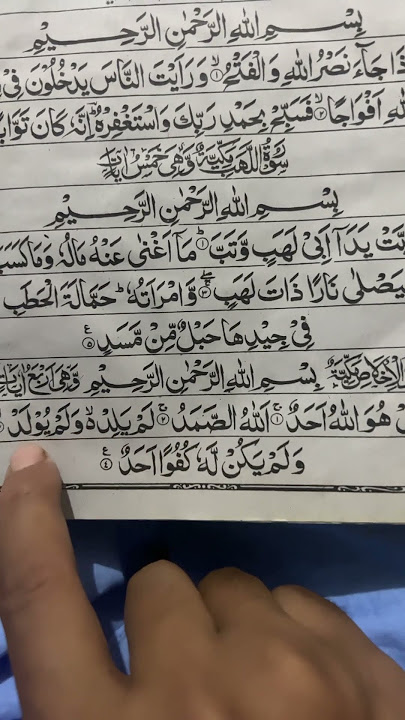 بِسْمِ اللهِ الرَّحْمٰنِ الرَّحِيْمِ
ذَا جَآءَ نَصْرُ اللهِ وَالْفَتْحُ ۙ﴿۱﴾ وَرَاَيْتَ النَّاسَ يَدْخُلُوْنَ فِیْ
اللهِ اَفْوَاجًا ۙ﴿۲﴾ فَسَبِّحْ بِحَمْدِ رَبِّكَ وَاسْتَغْفِرْهُ ؕ اِنَّهٗ كَانَ تَوَّابًا
سُوْرَةُ اللَّهَبِ مَكِّيَّةٌ وَّهِیَ خَمْسُ اٰيَاتٍ
بِسْمِ اللهِ الرَّحْمٰنِ الرَّحِيْمِ
بَّتْ يَدَاۤ اَبِیْ لَهَبٍ وَّتَبَّ ؕ﴿۱﴾ مَاۤ اَغْنٰی عَنْهُ مَالُهٗ وَمَا كَسَبَ
سَيَصْلٰی نَارًا ذَاتَ لَهَبٍ ۚۖ﴿۳﴾ وَّامْرَاَتُهٗ ؕ حَمَّالَةَ الْحَطَبِ
فِیْ جِيْدِهَا حَبْلٌ مِّنْ مَّسَدٍ ﴿۵﴾
الْاِخْلَاصِ مَكِّيَّةٌ بِسْمِ اللهِ الرَّحْمٰنِ الرَّحِيْمِ وَّهِیَ اَرْبَعُ اٰيَاتٍ
هُوَ اللهُ اَحَدٌ ۚ﴿۱﴾ اَللهُ الصَّمَدُ ۚ﴿۲﴾ لَمْ يَلِدْ ۙ۬ وَلَمْ يُوْلَدْ
وَلَمْ يَكُنْ لَّهٗ كُفُوًا اَحَدٌ ﴿۴﴾